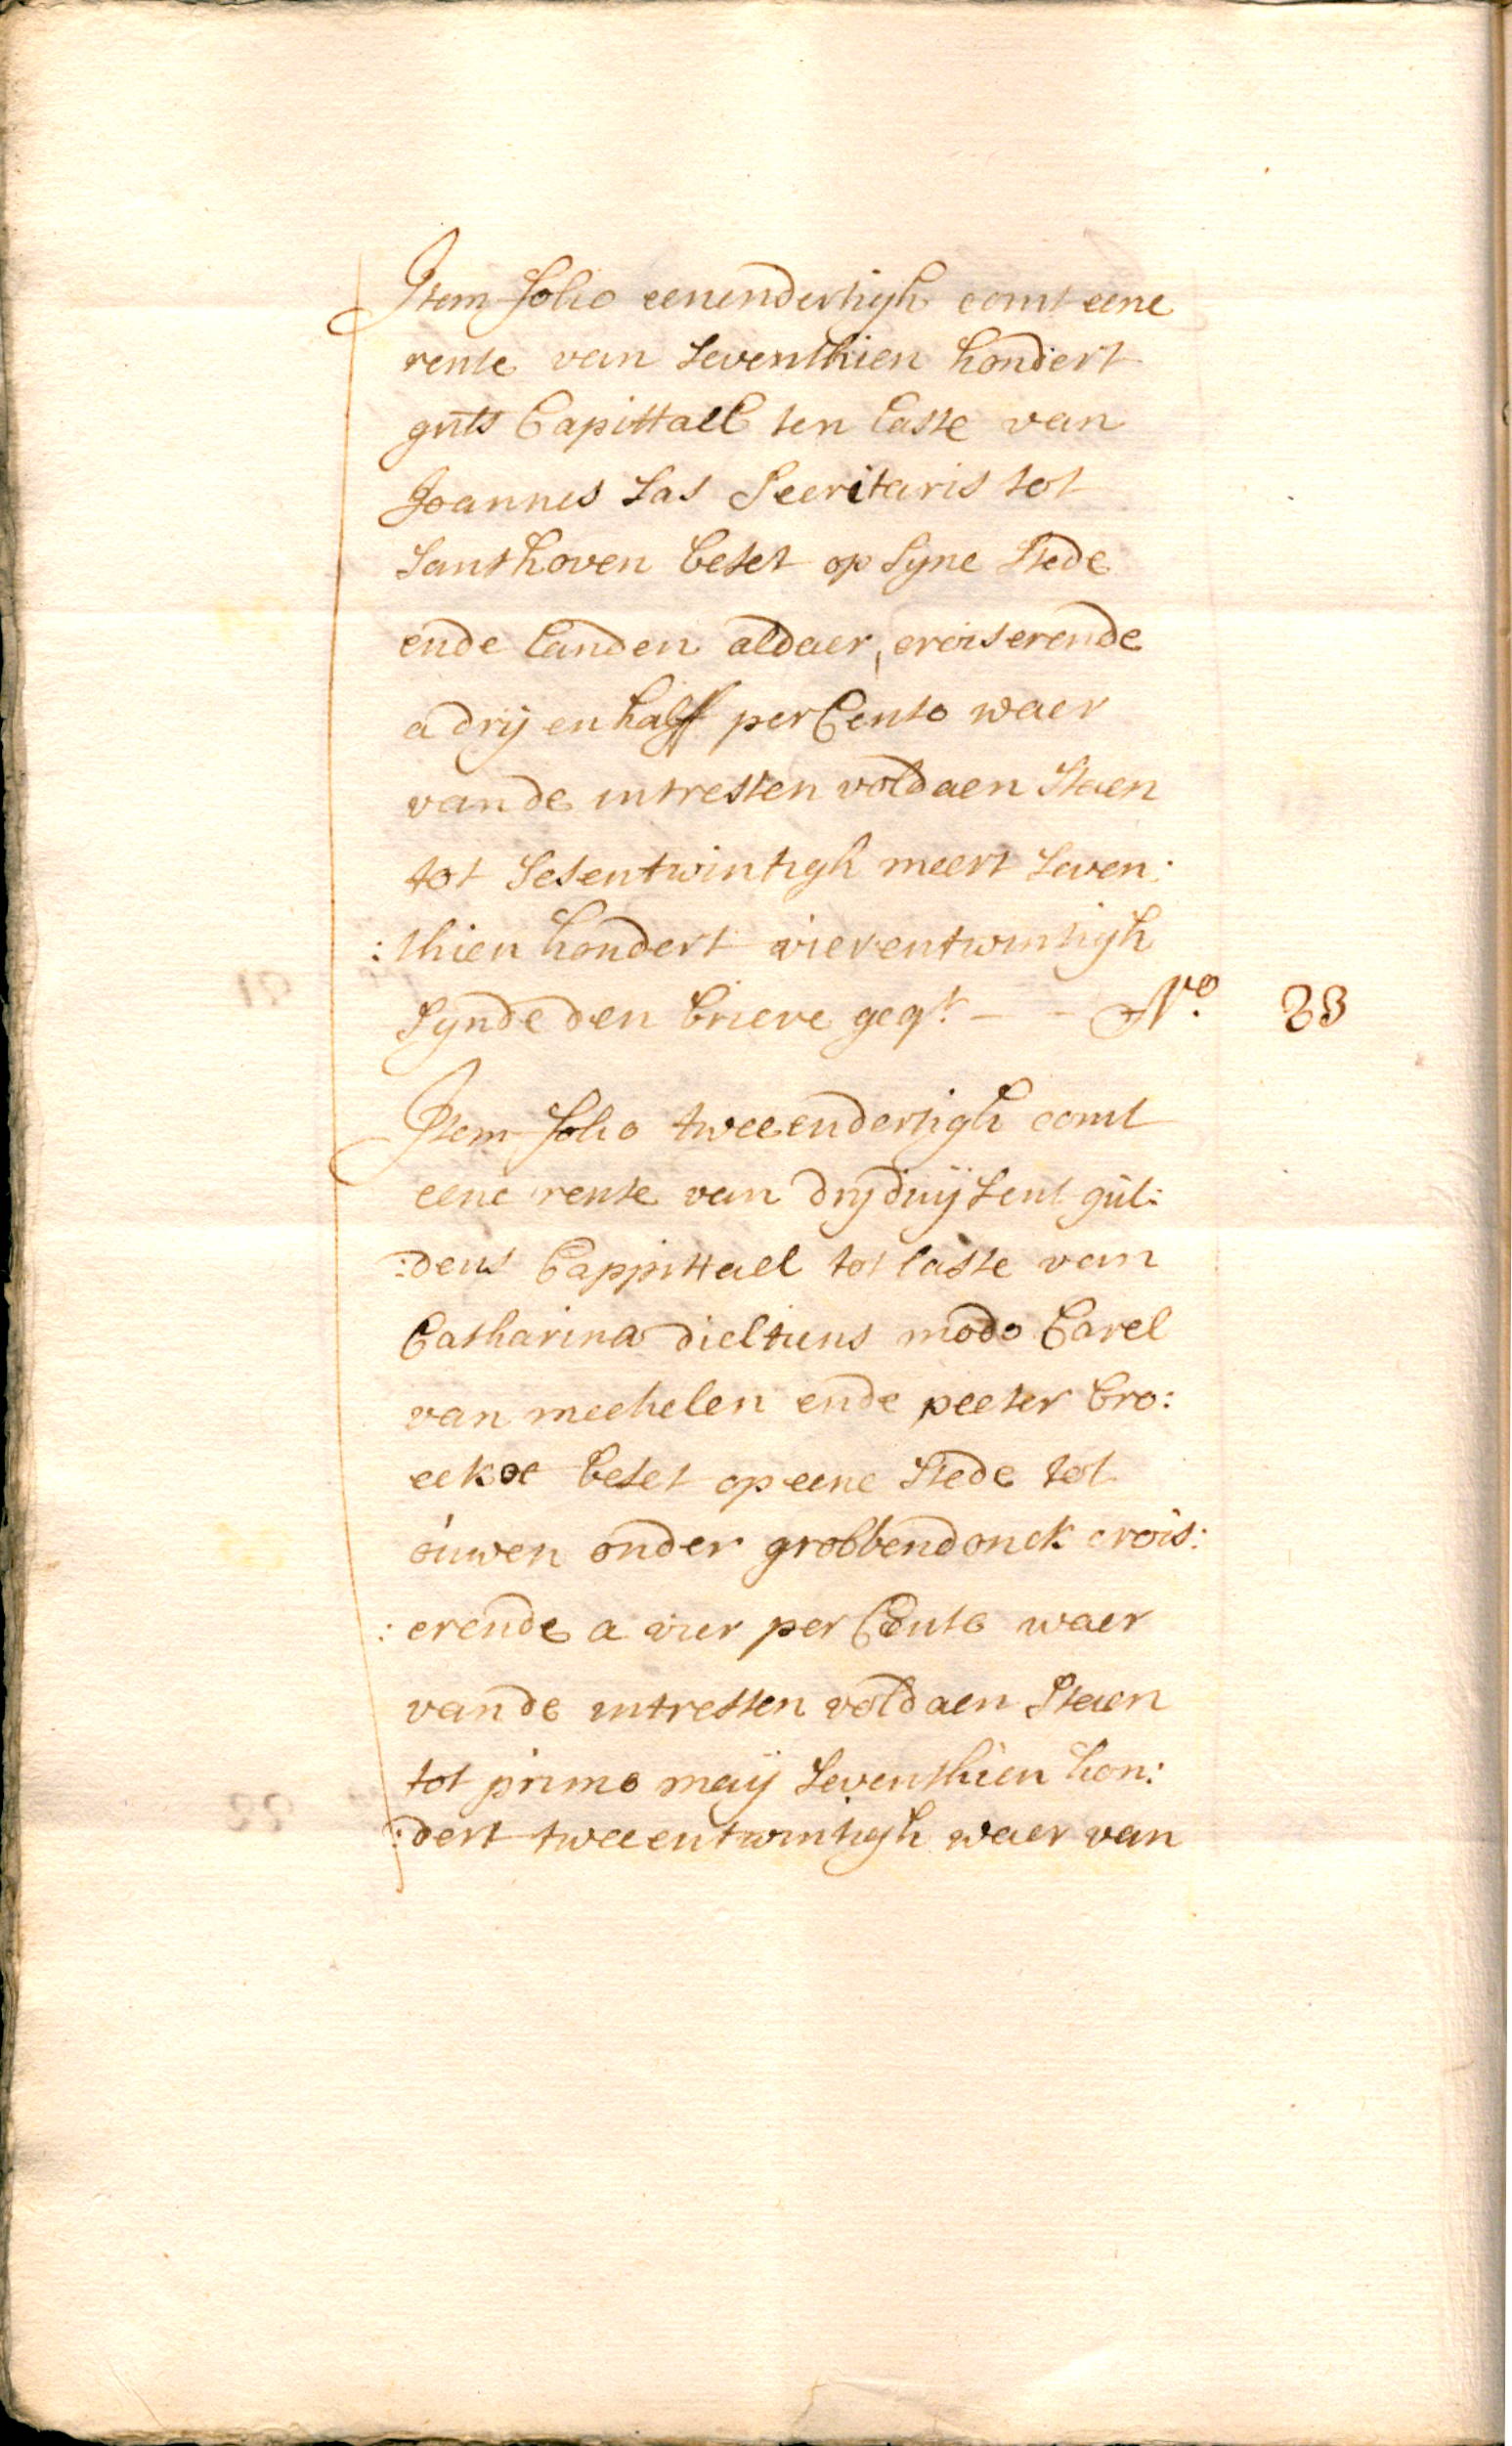 Item folio eenendertigh comt eene
rente van seventhien hondert
guls Capittael ten laste van
Joannes Sas Secritaris tot
Santhoven beset op syne stede
ende landen aldaer, croiserende
a drij en half per Cento waer
van de intresten voldaen staen
tot sesentwintigh meert seven:
:thien hondert vierentwintigh
synde den brieve geqt. - - No. 23
Item folio tweeendertigh comt
eene rente van drijduijsent gul:
:dens Cappittael tot laste van
Catharina dieltiens modo Carel
van mechelen ende peeter bro:
eckx beset op eene stede tot
ouwen onder grobbendonck crois:
:erende a vier per Cento waer
van de intresten voldaen staen
tot primo meij seventhien hon:
:dert tweeentwintigh waer van